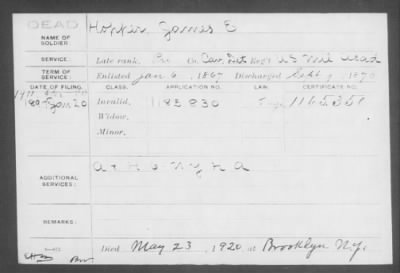 DEAD
NAME OF SOLDIER:
James E
SERVICE:
Late rank, Co. Cav. Det Reg't US Mil Acad
TERM OF SERVICE:
Enlisted Jan 6, 1867 Discharged Sept 1870
DATE OF FILING. CLASS. APPLICATION NO. LAW. CERTIFICATE NO.
Jan 20 Invalid, 1185830 1165358
Widow,
Minor,
ADDITIONAL SERVICES:
REMARKS:
Died May 23, 1920 at Brooklyn N.Y.